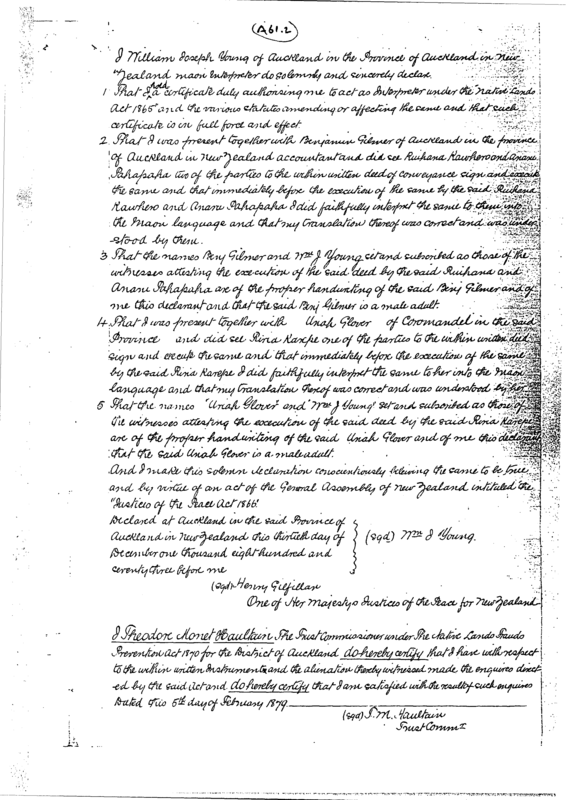 (A61.2)
I William Joseph Young of Auckland in the Province of Auckland in New
Zealand maori Interpreter do solemnly and sincerely declare
1 That I hold a certificate duly authorising me to act as Interpreter under the Native Lands
Act 1865 and the various statutes amending or affecting the same and that such
certificate is in full force and effect
2 That I was present together with Benjamin Gilmer of Auckland in the province
of Auckland in New Zealand accountant and did see Ruihana Kawhero and Anaru
Pahapaha two of the parties to the within written deed of conveyance sign and execute
the same and that immediately before the execution of the same by the said Ruihana
Kawhero and Anaru Pahapaha I did faithfully interpret the same to them into
the Maori language and that my translation thereof was correct and was under
stood by them.
3 That the names Benj Gilmer and Wm J Young set and subscribed as those of the
witnesses attesting the execution of the said deed by the said Ruihana and
Anaru Pahapaha are of the proper handwriting of the said Benj Gilmer and of
me this declarant and that the said Benj Gilmer is a male adult.
4 That I was present together with Uriah Glover of Coromandel in the said
Province and did see Riria Karepe one of the parties to the within written deed
sign and execute the same and that immediately before the execution of the same
by the said Riria Karepe I did faithfully interpret the same to her into the Maori
language and that my translation thereof was correct and was understood by her
5 That the names 'Uriah Glover' and 'Wm J Young' set and subscribed as those of
the witnesses attesting the execution of the said deed by the said Riria Karepe
are of the proper handwriting of the said Uriah Glover and of me this declarant
that the said Uriah Glover is a male adult.
And I make this solemn declaration conscientiously believing the same to be true
and by virtue of an act of the General Assembly of New Zealand intituled the
"Justices of the Peace Act 1866"
Declared at Auckland in the said Province of
Auckland in New Zealand this thirtieth day of
December one thousand eight hundred and
seventy three before me
(sgd) Wm J Young.
(sgd) Henry Gilfillan
One of Her Majestys Justices of the Peace for New Zealand
I Theodore Monet Haultain The Trust Commissioner under The Native Lands Frauds
Prevention Act 1870 for the District of Auckland do hereby certify that I have with respect
to the within written Instruments and the alienation thereby witnessed made the enquires direct
ed by the said Act and do hereby certify that I am satisfied with the result of such enquires
Dated this 5th day of February 1879
(sgd) T. M. Haultain
Trust Commr